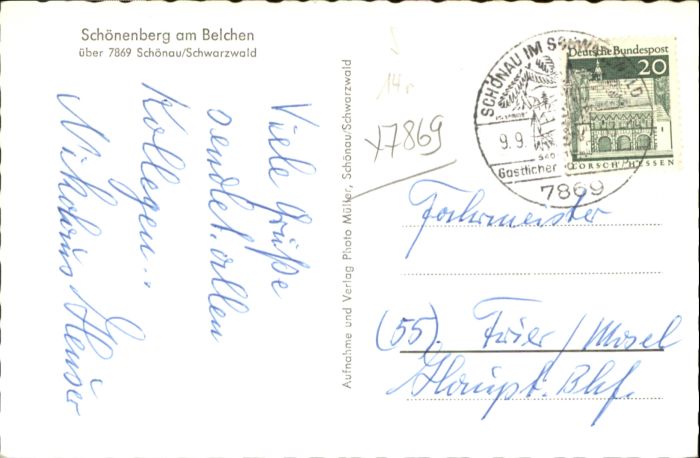 Schönenberg am Belchen
über 7869 Schönau/Schwarzwald
Viele Grüße
sendet allen
Kollegen
Nikolaus Heuser
Aufnahme und Verlag Photo Müller, Schönau/Schwarzwald
14
7869
SCHÖNAU IM SCHWARZWALD
9.9.
Gastlicher
7869
Deutsche Bundespost
20
LORSCH/HESSEN
Fahrmeister
(55). Trier/Mosel
Haupt. Bhf.